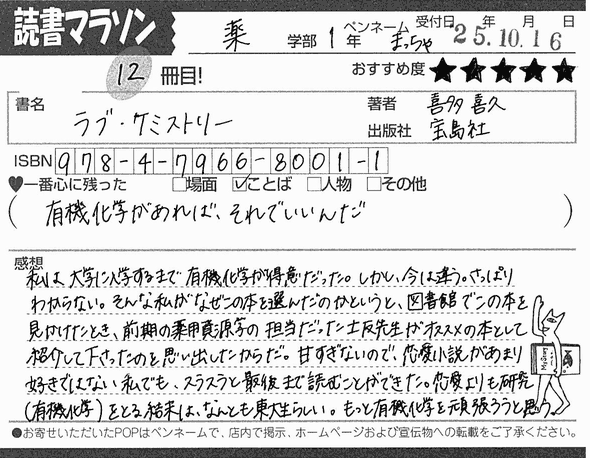 読書マラソン
薬 学部 1 年 ペンネーム まっちゃ 受付日 25.10.16 年 月 日
12 冊目! おすすめ度 ★★★★★
書名 ラブ・ケミストリー 著者 喜多喜久
出版社 宝島社
ISBN 978-4-7966-8001-1
♥一番心に残った □場面 ☑ことば □人物 □その他
(有機化学があれば、それでいいんだ)
感想
私は大学に入学するまで有機化学が得意だった。しかし、今は違う。さっぱり
わからない。そんな私がなぜこの本を選んだのかというと、図書館でこの本を
見かけたとき、前期の薬用資源学の担当だった土反先生がオススメの本として
紹介して下さったのを思い出したからだ。甘すぎないので、恋愛小説があまり
好きではない私でも、スラスラと最後まで読むことができた。恋愛よりも研究
(有機化学)をとる結末は、なんとも東大生らしい。もっと有機化学を頑張ろうと思う。
●お寄せいただいたPOPはペンネームで、店内で掲示、ホームページおよび宣伝物への転載をご了承ください。